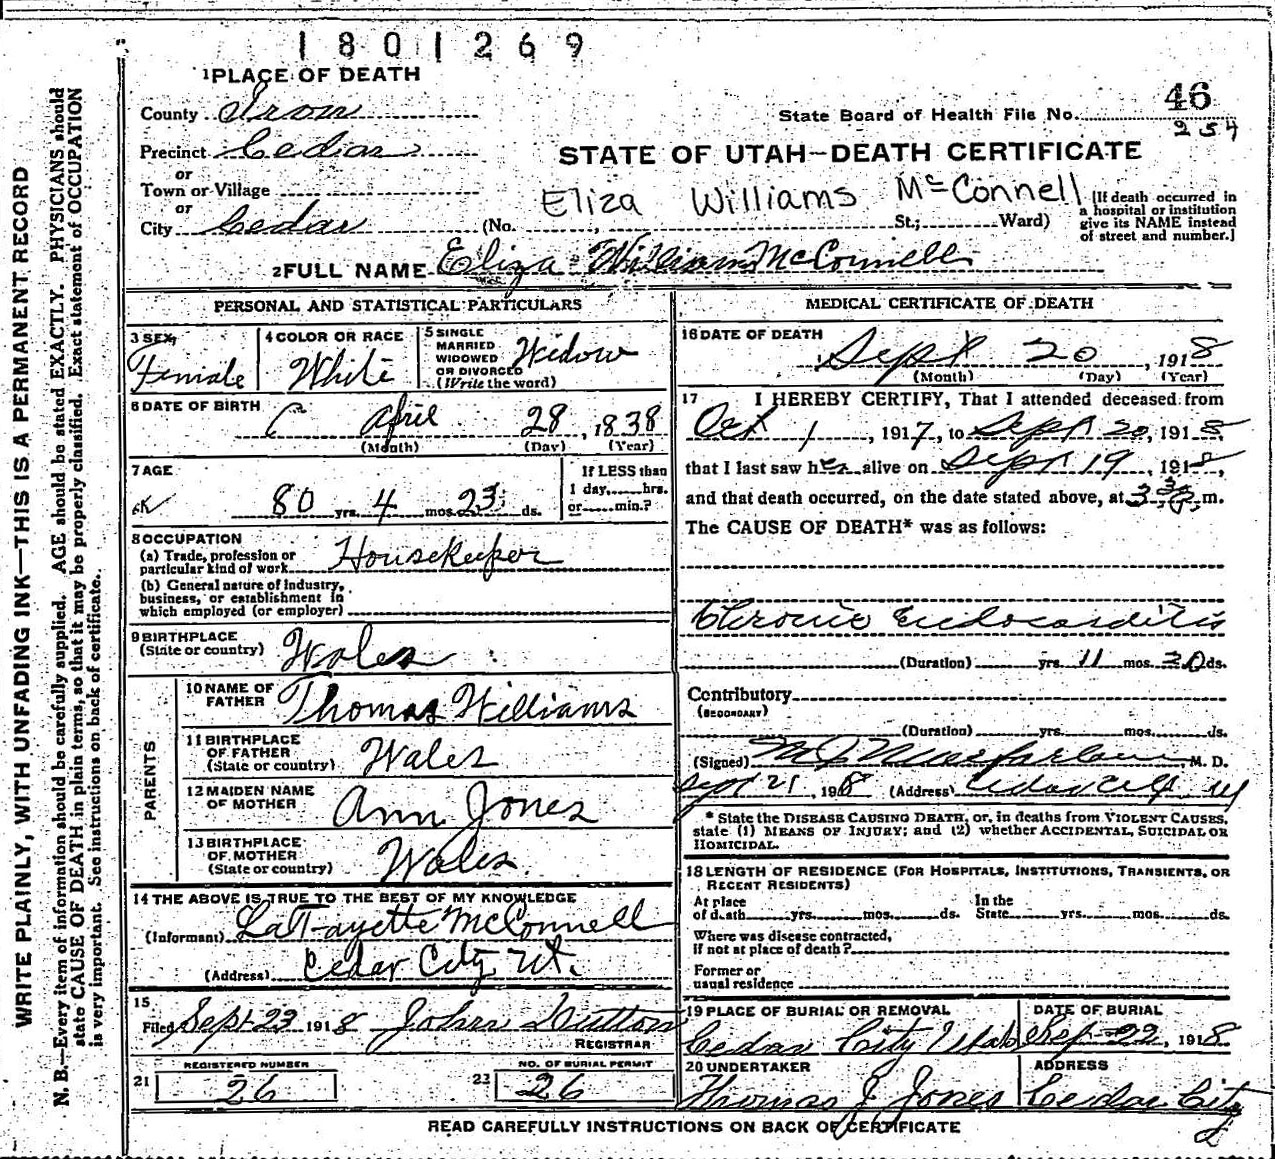 1801269
1 PLACE OF DEATH
County Iron
46
State Board of Health File No.
254
Precinct Cedar
STATE OF UTAH—DEATH CERTIFICATE
or
Town or Village
Eliza Williams McConnell
or
City Cedar (No. St.; Ward)
[If death occurred in
a hospital or institution
give its NAME instead
of street and number.]
2 FULL NAME Eliza Williams McConnell
PERSONAL AND STATISTICAL PARTICULARS
3 SEX
Female
4 COLOR OR RACE
White
5 SINGLE
MARRIED
WIDOWED
OR DIVORCED
(Write the word)
Widow
6 DATE OF BIRTH
April 28, 1838
(Month) (Day) (Year)
7 AGE
80 yrs. 4 mos. 23 ds.
If LESS than
1 day, hrs.
or min.?
8 OCCUPATION
(a) Trade, profession or
particular kind of work Housekeeper
(b) General nature of industry,
business, or establishment in
which employed (or employer)
9 BIRTHPLACE
(State or country) Wales
PARENTS
10 NAME OF
FATHER Thomas Williams
11 BIRTHPLACE
OF FATHER
(State or country) Wales
12 MAIDEN NAME
OF MOTHER Ann Jones
13 BIRTHPLACE
OF MOTHER
(State or country) Wales
14 THE ABOVE IS TRUE TO THE BEST OF MY KNOWLEDGE
(Informant) LaFayette McConnell
(Address) Cedar City Ut.
15
Filed Sept 23 1918 John
REGISTRAR
REGISTERED NUMBER
21 26
NO. OF BURIAL PERMIT
22 26
MEDICAL CERTIFICATE OF DEATH
16 DATE OF DEATH
Sept 20, 1918
(Month) (Day) (Year)
17 I HEREBY CERTIFY, That I attended deceased from
Oct 1, 1917, to Sept 20, 1918,
that I last saw her alive on Sept 19, 1918,
and that death occurred, on the date stated above, at 3 m.
The CAUSE OF DEATH* was as follows:
Chronic Endocarditis
(Duration) yrs. 11 mos. 20 ds.
Contributory
(SECONDARY)
(Duration) yrs. mos. ds.
(Signed) M J Macfarlane M. D.
Sept 21, 1918 (Address) Cedar City, Ut
* State the DISEASE CAUSING DEATH, or, in deaths from VIOLENT CAUSES,
state (1) MEANS OF INJURY; and (2) whether ACCIDENTAL, SUICIDAL OR
HOMICIDAL.
18 LENGTH OF RESIDENCE (FOR HOSPITALS, INSTITUTIONS, TRANSIENTS, OR
RECENT RESIDENTS)
At place
of death yrs. mos. ds.
In the
State yrs. mos. ds.
Where was disease contracted,
if not at place of death?
Former or
usual residence
19 PLACE OF BURIAL OR REMOVAL
Cedar City Utah
DATE OF BURIAL
Sep 22, 1918
20 UNDERTAKER
Thomas J Jones
ADDRESS
Cedar City
READ CAREFULLY INSTRUCTIONS ON BACK OF CERTIFICATE
WRITE PLAINLY, WITH UNFADING INK—THIS IS A PERMANENT RECORD
N. B.—Every item of information should be carefully supplied. AGE should be stated EXACTLY. PHYSICIANS should
state CAUSE OF DEATH in plain terms, so that it may be properly classified. Exact statement of OCCUPATION
is very important. See instructions on back of certificate.